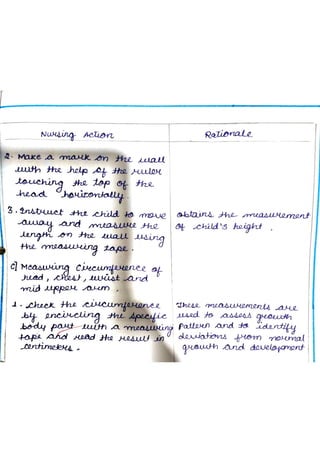 Nursing Action
Rationale
2. Make a mark on the wall
with the help of the ruler
touching the top of the
head horizontally.
3. Instruct the child to move
away and measure the
length on the wall using
the measuring tape.
obtains the measurement
of child's height.
c] Measuring circumference of
head, chest, wrist and
mid upper arm.
1. Check the circumference
by encircling the specific
body part with a measuring
tape and read the result in
centimeters.
These measurements are
used to assess growth
pattern and to identify
deviations from normal
growth and development